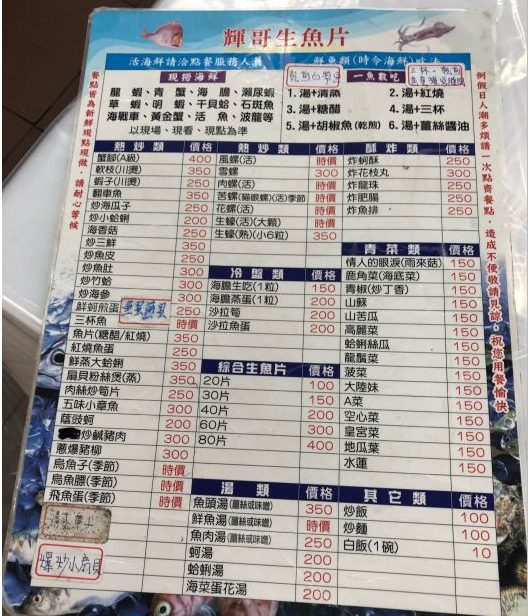 輝哥生魚片
活海鮮請洽點餐服務人員
鮮魚類(時令海鮮)吃法
餐點皆為新鮮現點現做，請耐心等候
例假日人潮多煩請一次點齊餐點，造成不便敬請見諒，祝您用餐愉快
現撈海鮮
龍 蝦、青 蟹、海 膽、瀨尿蝦
草 蝦、明 蝦、干貝蛤、石斑魚
海戰車、黃金蟹、活 魚、波龍等
以現場、現看、現點為準
一魚數吃
1. 湯+清蒸
2. 湯+紅燒
3. 湯+糖醋
4. 湯+三杯
5. 湯+胡椒魚(乾煎)
6. 湯+薑絲醬油
熱炒類 價格
蟹腳(A級) 400
軟枝(川燙) 350
蝦子(川燙) 250
翻車魚 350
炒海瓜子 250
炒小蛤蜊 200
海香菇 250
炒三鮮 350
炒魚皮 250
炒魚肚 300
炒竹蛤 300
炒海參 300
鮮蚵煎蛋 250
三杯魚 時價
魚片(糖醋/紅燒) 350
紅燒魚蛋 250
鮮蒸大蛤蜊 350
扇貝粉絲煲(蒸) 350
肉絲炒筍片 250
五味小章魚 300
蔭豉蚵 200
炒鹹豬肉 300
蔥爆豬柳 300
烏魚子(季節) 時價
烏魚鰾(季節) 時價
飛魚蛋(季節) 時價
爆炒小扇貝
熱炒類 價格
風螺(活) 時價
雪螺 300
肉螺(活) 時價
苦螺(貓眼螺)(活)季節 時價
花螺(活) 時價
生蠔(活)(大顆) 時價
生蠔(熟)(小6粒) 350
冷盤類 價格
海膽生吃(1粒) 150
海膽蒸蛋(1粒) 200
沙拉筍 200
沙拉魚蛋 200
綜合生魚片 價格
20片 100
30片 150
40片 200
60片 300
80片 400
湯類 價格
魚頭湯(薑絲或味噌) 350
鮮魚湯(薑絲或味噌) 時價
魚肉湯(薑絲或味噌) 250
蚵湯 200
蛤蜊湯 200
海菜蛋花湯 200
酥炸類 價格
炸蚵酥 250
炸花枝丸 300
炸龍珠 250
炸肥腸 250
炸魚排 250
青菜類 價格
情人的眼淚(雨來菇) 150
鹿角菜(海底菜) 150
青椒(炒丁香) 150
山蘇 150
山苦瓜 150
高麗菜 150
蛤蜊絲瓜 150
龍鬚菜 150
菠菜 150
大陸妹 150
A菜 150
空心菜 150
皇宮菜 150
地瓜葉 150
水蓮 150
其它類 價格
炒飯 100
炒麵 100
白飯(1碗) 10